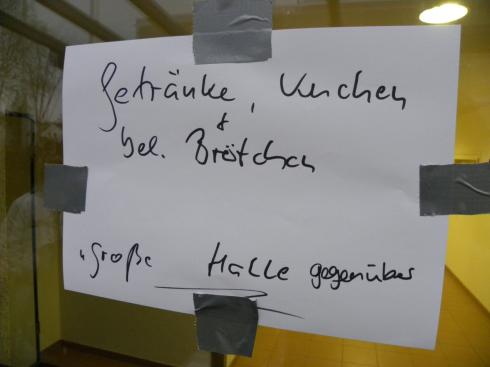 Getränke, Kuchen
+
bel. Brötchen
"Große Halle gegenüber